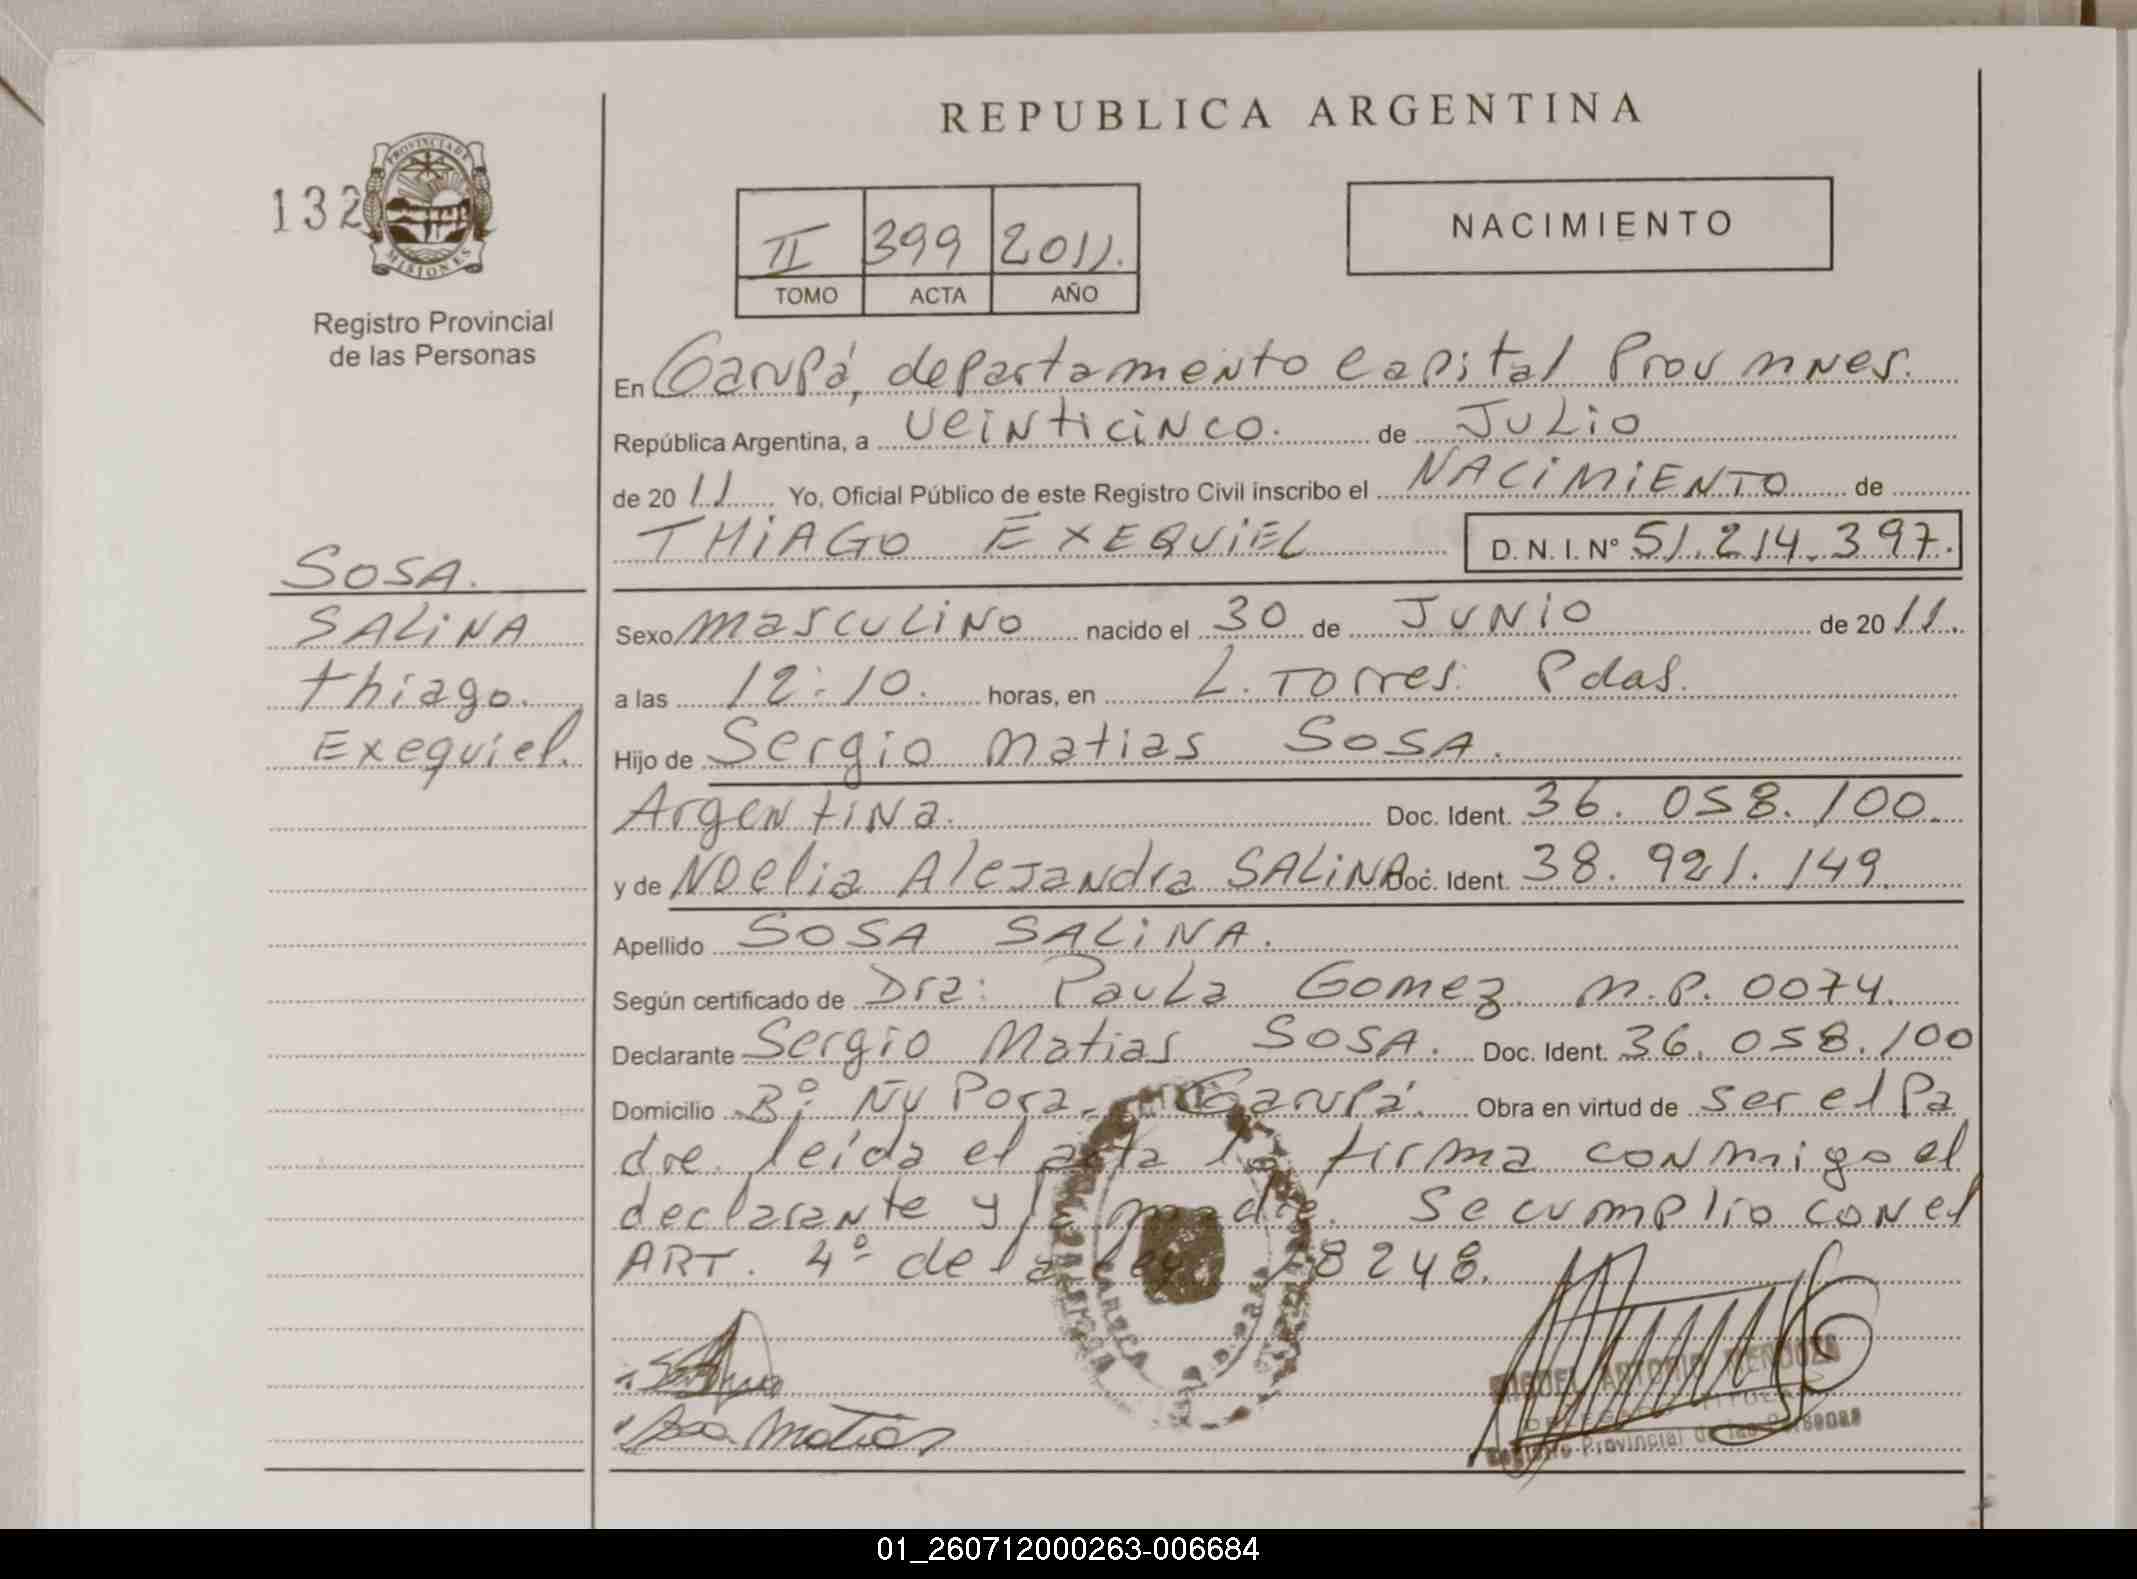 REPUBLICA ARGENTINA
132
PROVINCIA DE
MISIONES
Registro Provincial
de las Personas
II 399 2011.
TOMO ACTA AÑO
NACIMIENTO
En Garupá, departamento Capital Prov mnes.
República Argentina, a veinticinco. de Julio
de 20 11 Yo, Oficial Público de este Registro Civil inscribo el NACIMIENTO de
THIAGO EXEQUIEL D. N. I. Nº 51.214.397.
SOSA.
SALINA
thiago.
Exequiel.
Sexo masculino nacido el 30 de JUNIO de 20 11.
a las 12:10. horas, en L. Torres. Pdas.
Hijo de Sergio Matias SOSA.
Argentina. Doc. Ident. 36. 058. 100.
y de Noelia Alejandra SALINA Doc. Ident. 38. 921. 149.
Apellido SOSA SALINA.
Según certificado de Dra: Paula Gomez M.P. 0074.
Declarante Sergio Matias SOSA. Doc. Ident. 36. 058. 100
Domicilio Bº Ñu Pora - Garupá. Obra en virtud de ser el Pa
dre. leida el acta la firma conmigo el
declarante y la madre. Se cumplio con el
ART. 4º de la ley 18248.
Sosa Matias
MIGUEL ANTONIO MENDOZA
DELEGADO TITULAR
Registro Provincial de las Personas
01_260712000263-006684